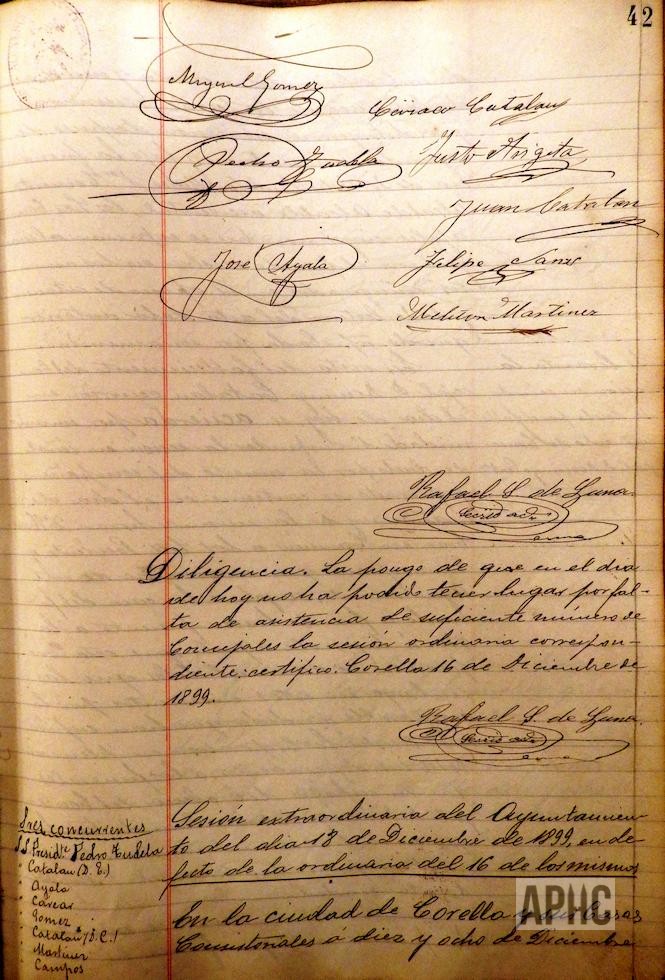 42
Miguel Gomez
Ciriaco Catalan
Pedro Tudela
Justo Arigita
Juan Catalan
José Ayala
Felipe Sanz
Meliton Martinez
Rafael S. de Luna
Diligencia. La pongo de que en el dia
de hoy no ha podido tener lugar por fal-
ta de asistencia de suficiente número de
Concejales la sesión ordinaria correspon-
diente: certifico. Corella 16 de Diciembre de
1899.
Rafael S. de Luna.
Sres. concurrentes
Presidte. Pedro Tudela
Catalan (D. E.)
Ayala
Gomez
Catalan (D. C.)
Martinez
Campos
Sesión extraordinaria del Ayuntamien-
to del dia 18 de Diciembre de 1899, en de-
fecto de la ordinaria del 16 de los mismos
En la ciudad de Corella y sus Casas
Consistoriales á diez y ocho de Diciembre
APHC